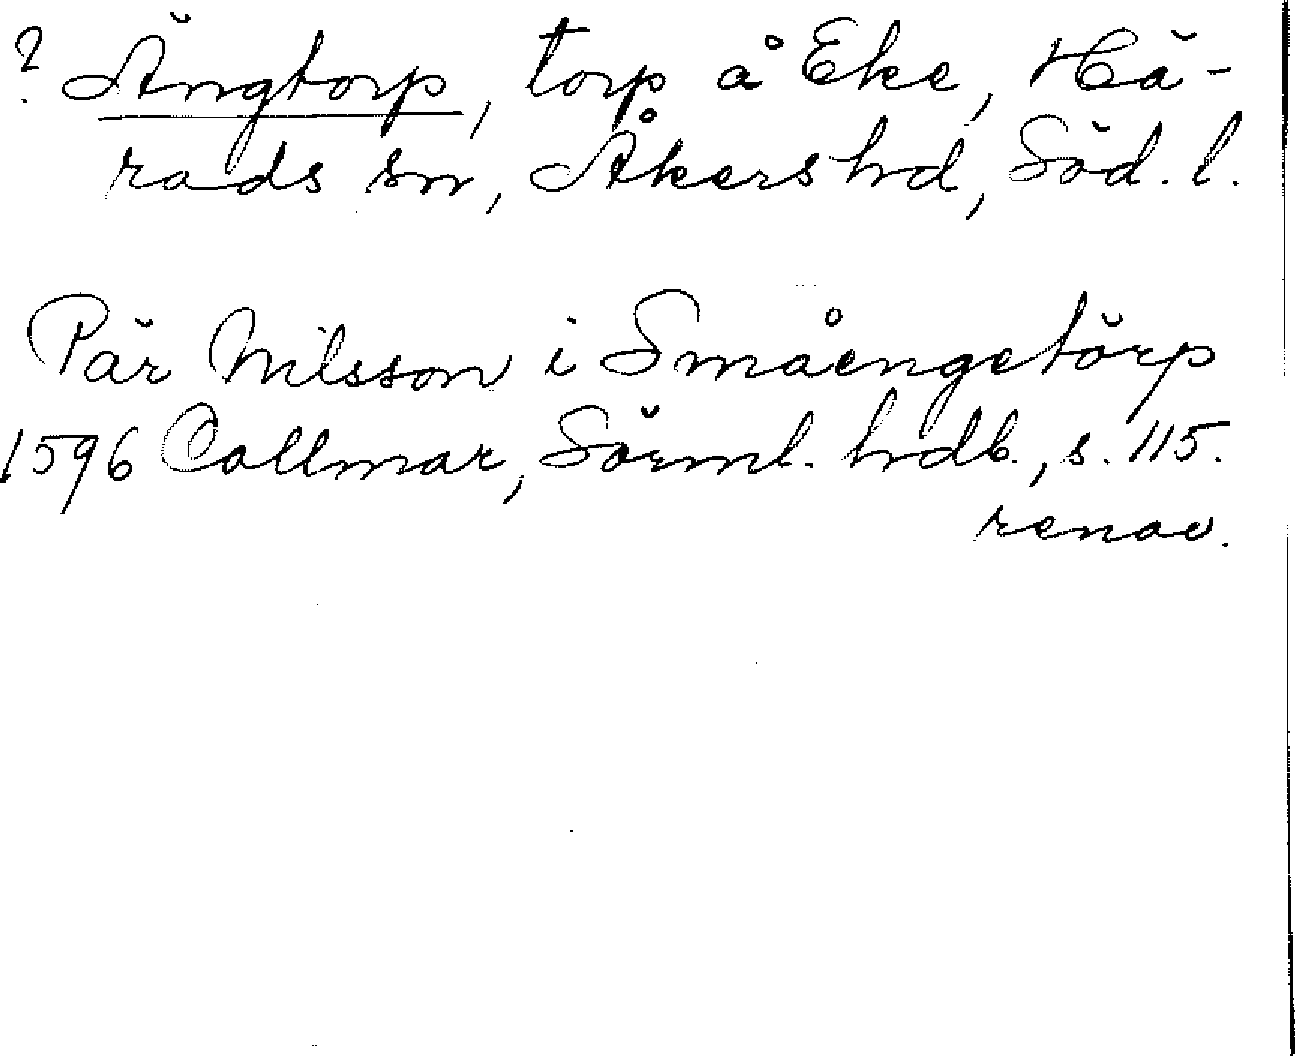 ? Ängtorp, torp å Eke, Hä-
rads sn, Åkers hd, Söd. l.
Pär Nilsson i Småengetörp
1596 Collmar, Sörml. hdb., s. 115.
renov.